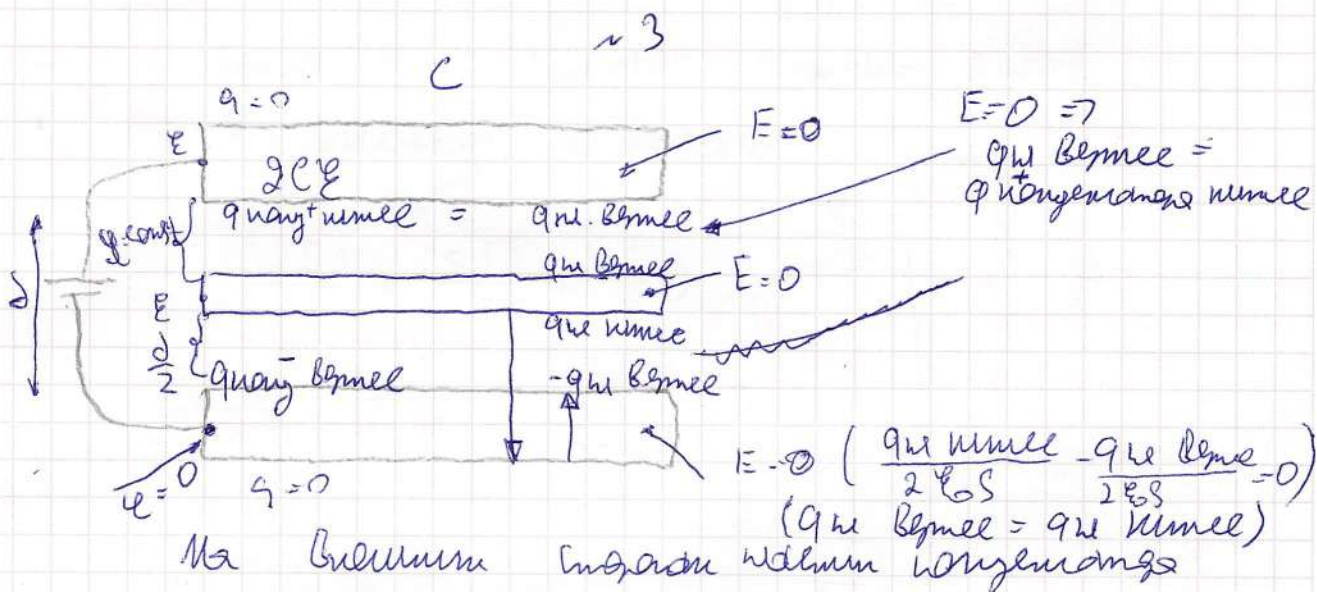 № 3
C
q = 0
ξ
2Cξ
E = 0
E = 0 ⇒
qпл верхнее =
q⁺ конденсатора нижнее
q конд⁺ нижнее = qпл. верхнее
φ = const
qпл верхнее
E = 0
d
ξ
qпл нижнее
d/2
q конд⁻ верхнее
-qпл верхнее
E = 0 (qпл нижнее/2ε₀S - qпл верхнее/2ε₀S = 0)
φ = 0
q = 0
(qпл верхнее = qпл нижнее)
На внешних сторонах пластин конденсатора